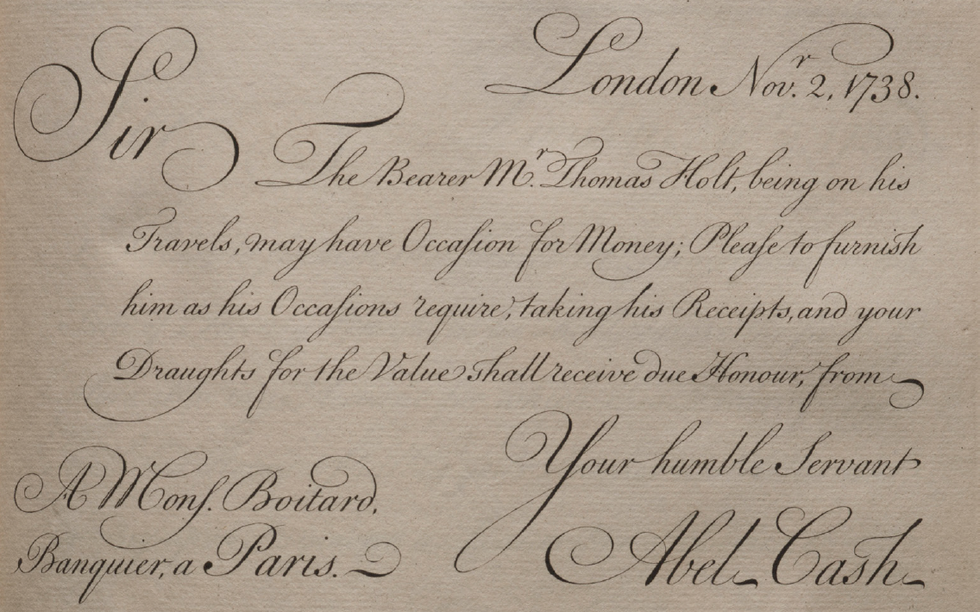 London Nov.r 2, 1738.
Sir
The Bearer M.r Thomas Holt, being on his
Travels, may have Occaſion for Money; Pleaſe to furnish
him as his Occaſions require, taking his Receipts, and your
Draughts for the Value shall receive due Honour, from
Your humble Servant
A Monſ. Boitard,
Banquier, a Paris.
Abel Cash